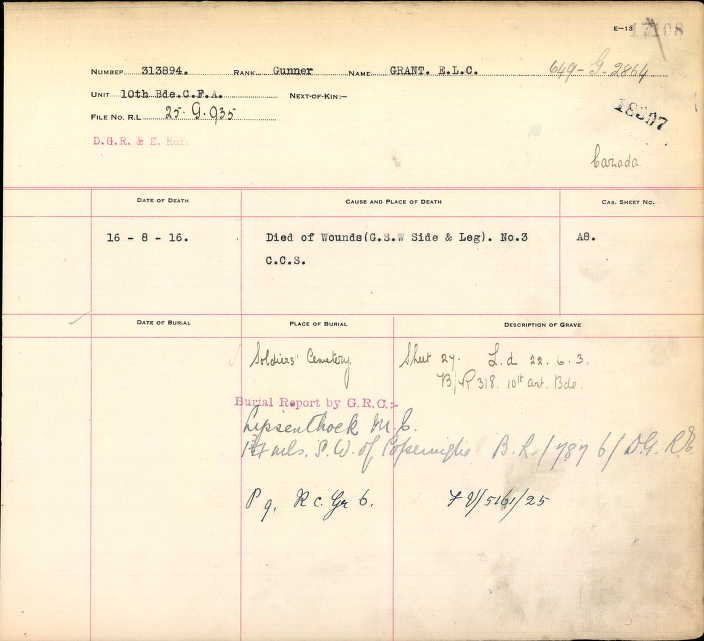 E-13 17108
NUMBER 313894. RANK Gunner NAME GRANT. E.L.C. 649-G-2864
UNIT 10th Bde.C.F.A. NEXT-OF-KIN:-
FILE No. R.L 25.G.935
D.G.R. & E.
Canada
DATE OF DEATH CAUSE AND PLACE OF DEATH CAS. SHEET NO.
16 - 8 - 16. Died of Wounds(G.S.W Side & Leg). No.3 A8.
C.C.S.
DATE OF BURIAL PLACE OF BURIAL DESCRIPTION OF GRAVE
Soldiers' Cemetery Sheet 27. L.d 22.6.3.
B/R 318. 10th art. Bde.
Burial Report by G.R.C:-
Lijssenthoek M.C.
mls. S.W. of Poperinghe B.R./787 6/ D.G.R.E
P 9. R C. Gr 6. F V/5161/25